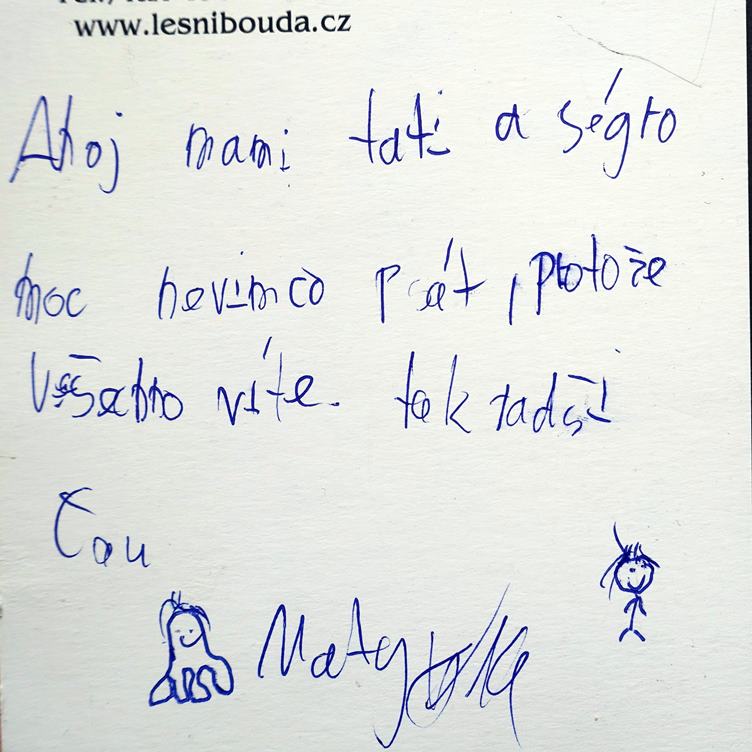 www.lesnibouda.cz
Ahoj mami tati a ségro
moc nevim co psát, protože
všechno víte. tak radši
Čau